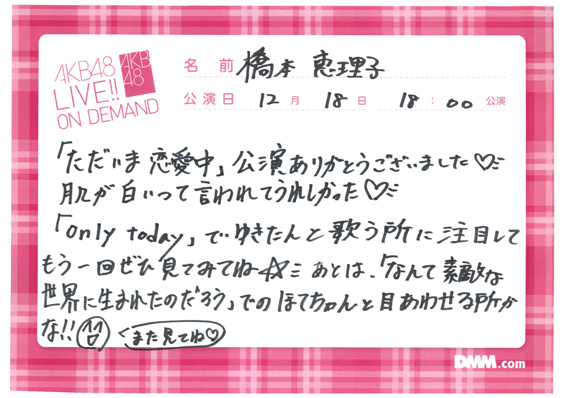 AKB48
LIVE!!
ON DEMAND
AKB
48
名前 橋本 恵理子
公演日 12月 18日 18:00公演
「ただいま 恋愛中」公演ありがとうございました♡
肌が白いって言われてうれしかった♡
「only today」でゆきたんと歌う所に注目して
もう一回ぜひ見てみてね☆ あとは、「なんて素敵な
世界に生まれたのだろう」でのほてちゃんと目あわせる所か
な!!
また見てね♡
DMM.com